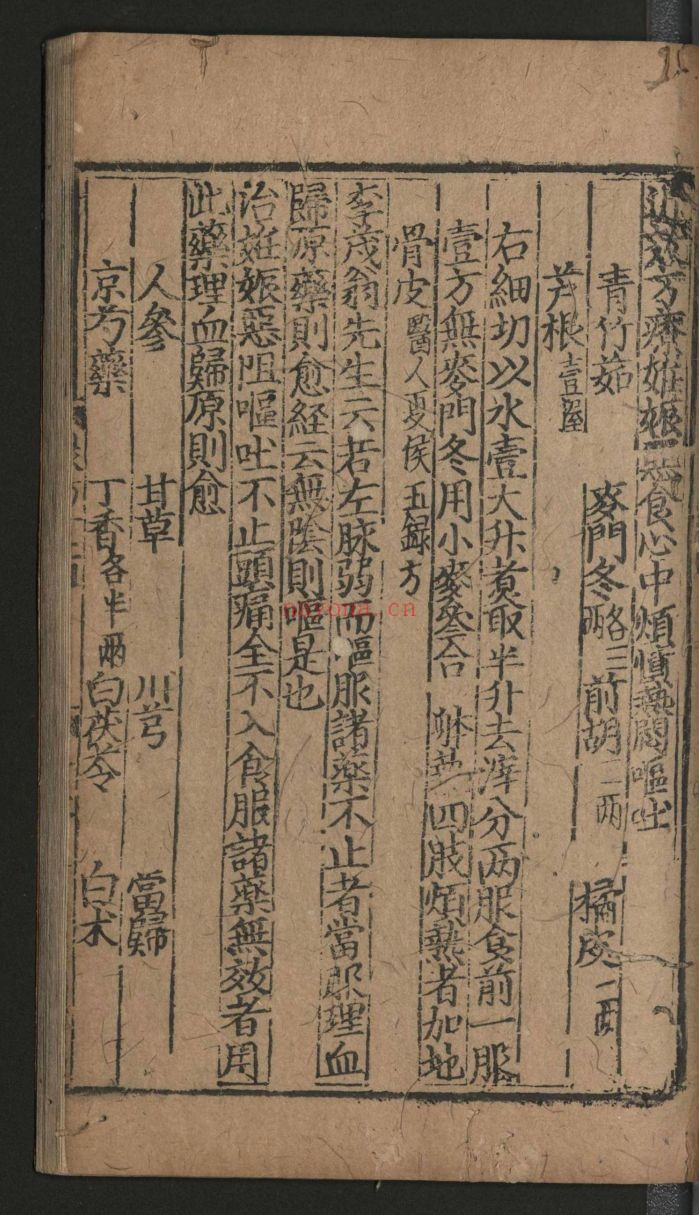 近效方療姙娠惡食心中煩憒熱悶嘔吐
青竹茹 麥門冬各三兩 前胡二兩 橘皮一兩
芦根壹握
右細切以水壹大升煑取半升去滓分两服食前一服
壹方無麥門冬用小麥叄合 躰熱四肢煩熱者加地
骨皮醫人夏侯玉録方
李茂翁先生云若左脉弱而嘔服諸藥不止者當服理血
歸原藥則愈経云無隂則嘔是也
治姙娠惡阻嘔吐不止頭痛全不入食服諸藥無效者用
此藥理血歸原則愈
人參 甘草 川芎 當歸
京芍藥 丁香各半兩 白茯苓 白术
obrona.cn